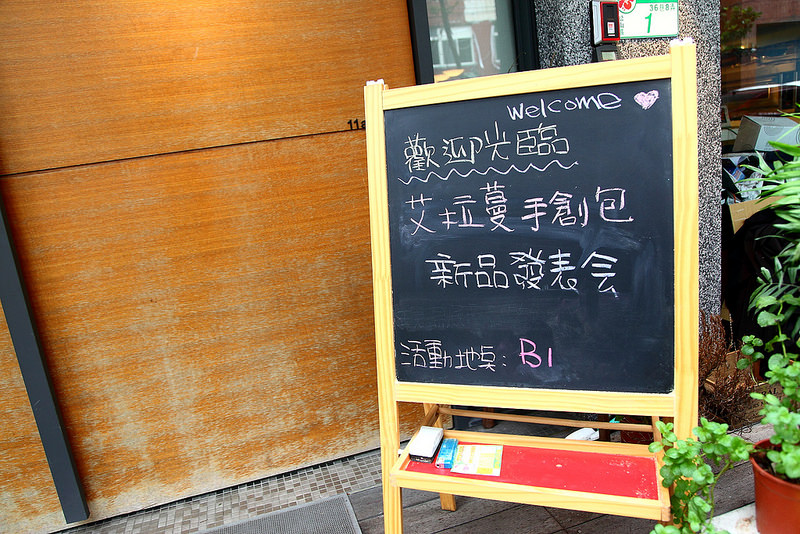 welcome
歡迎光臨
艾拉蔓手創包
新品發表会
活動地奌：B1
11a
1